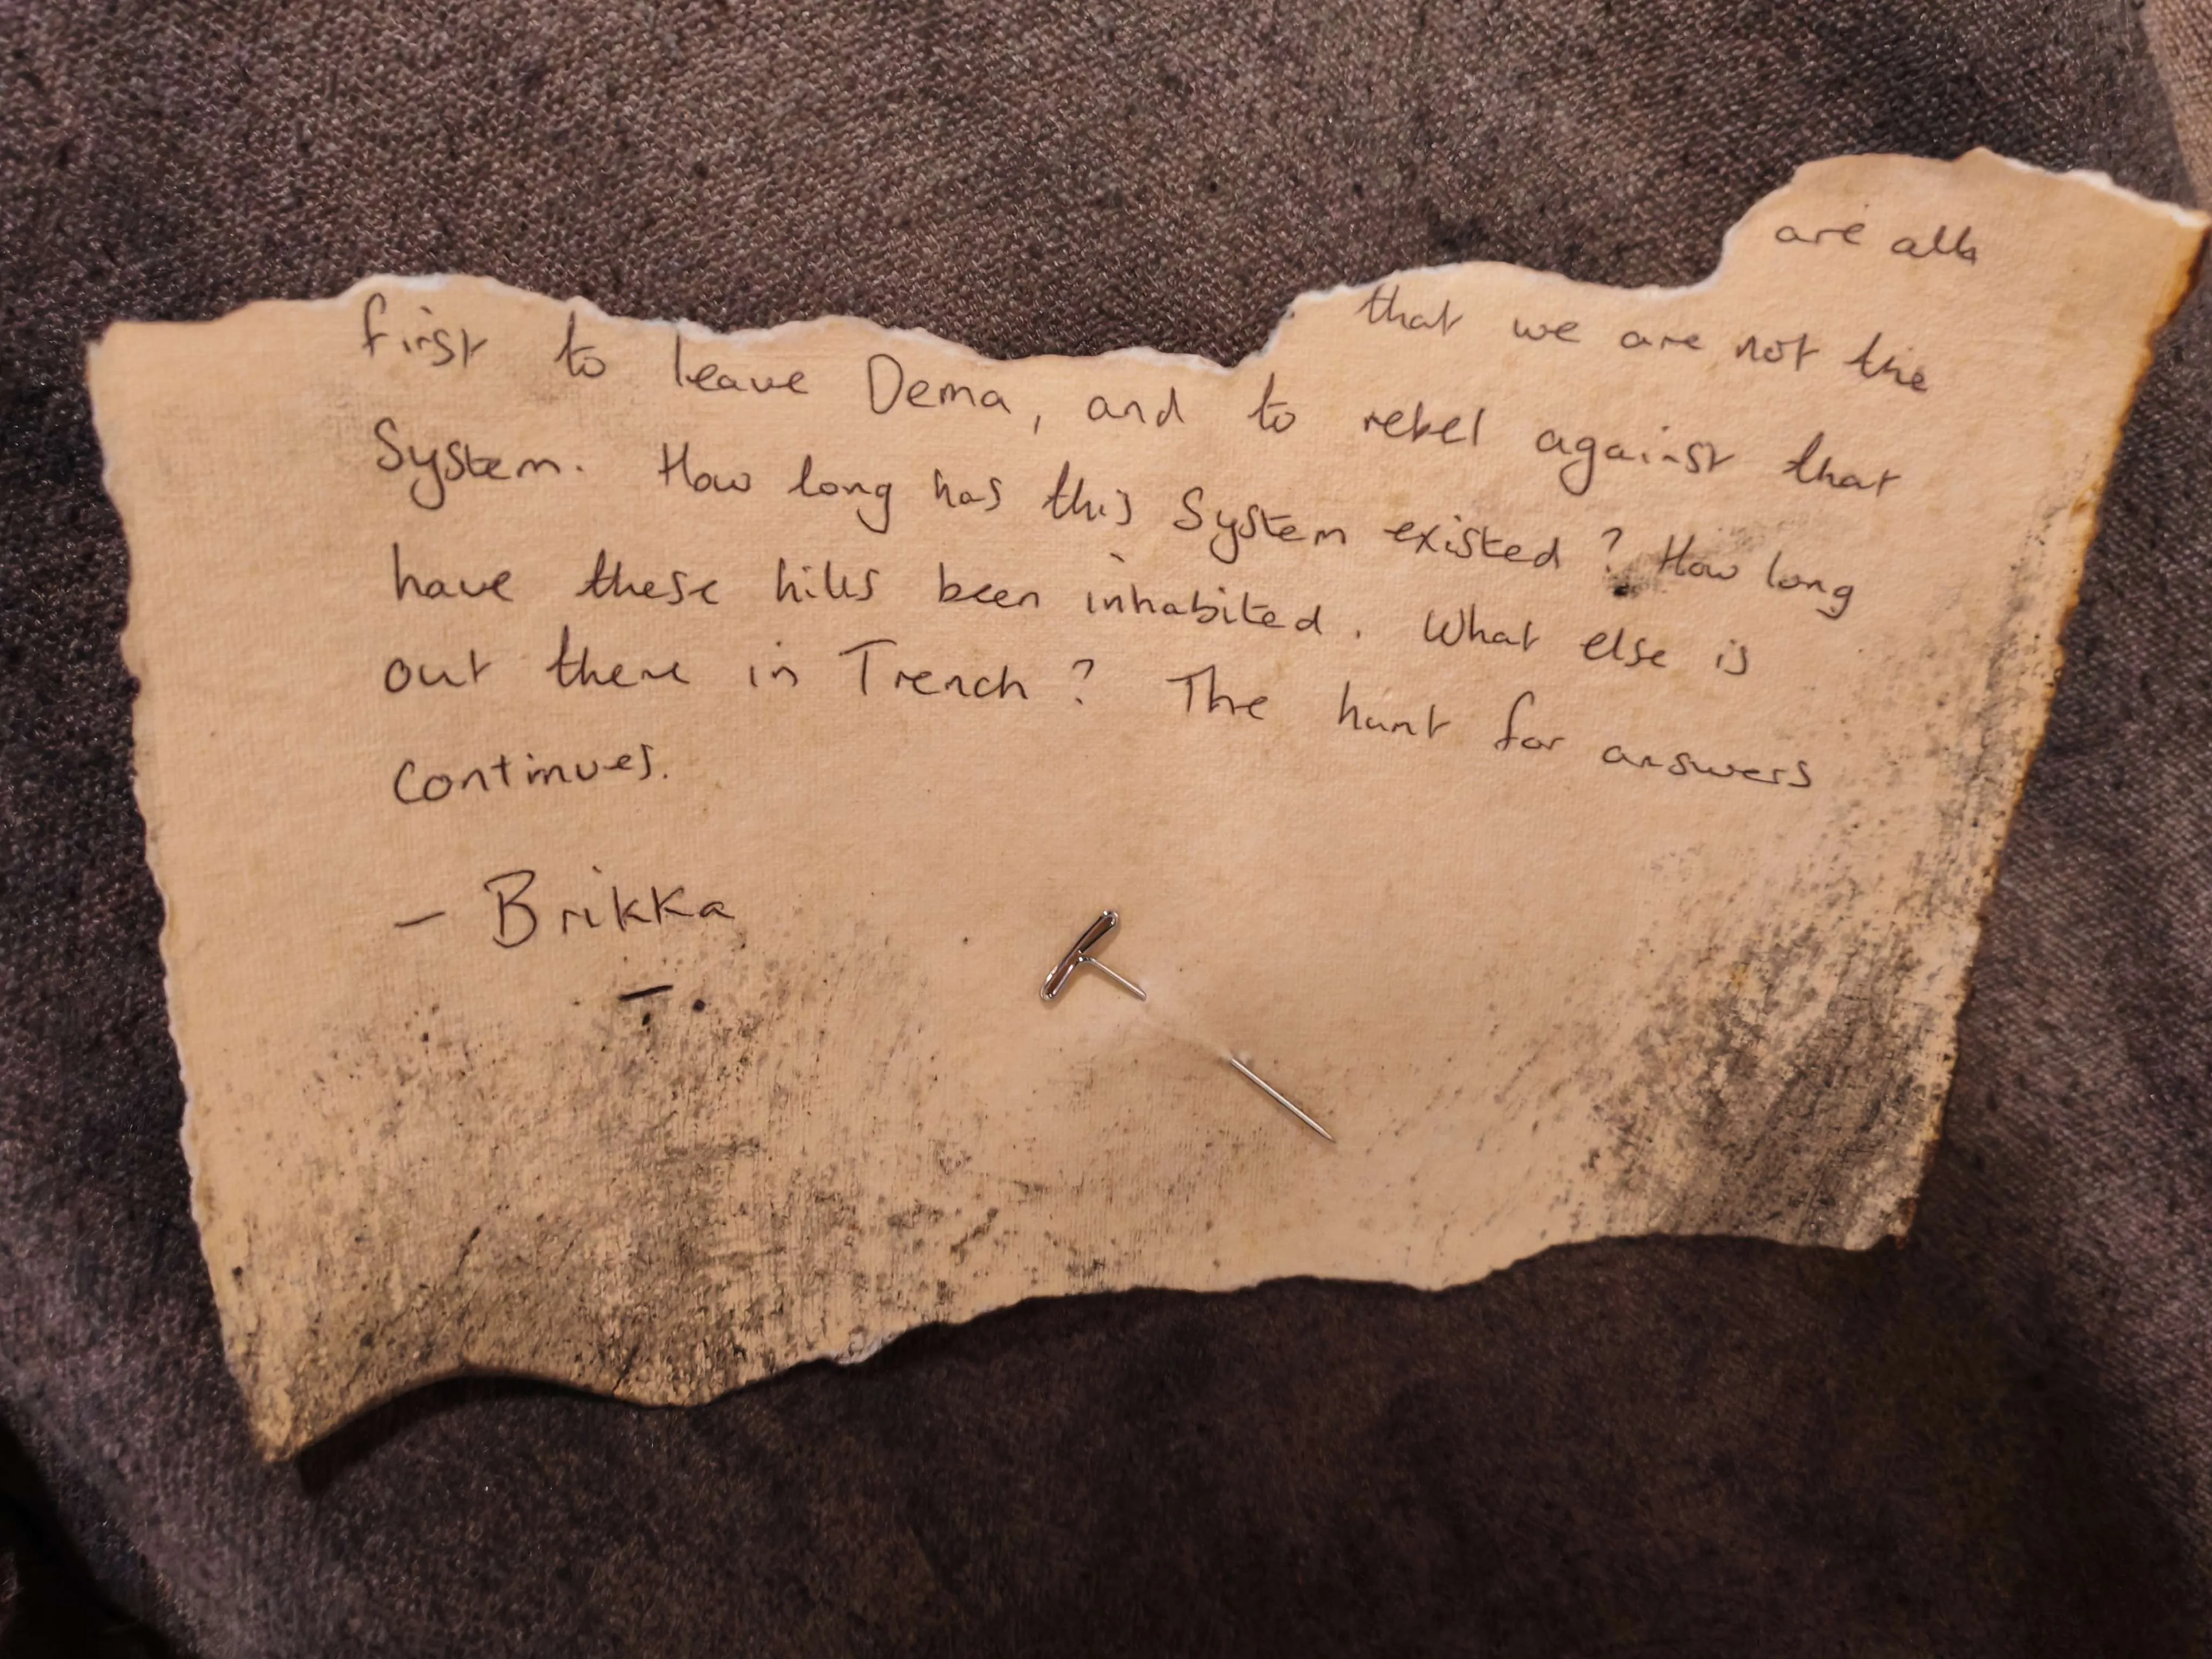 are all
that we are not the
first to leave Dema, and to rebel against that
System. How long has this System existed? How long
have these hills been inhabited. What else is
out there in Trench? The hunt for answers
continues.
– Brikka